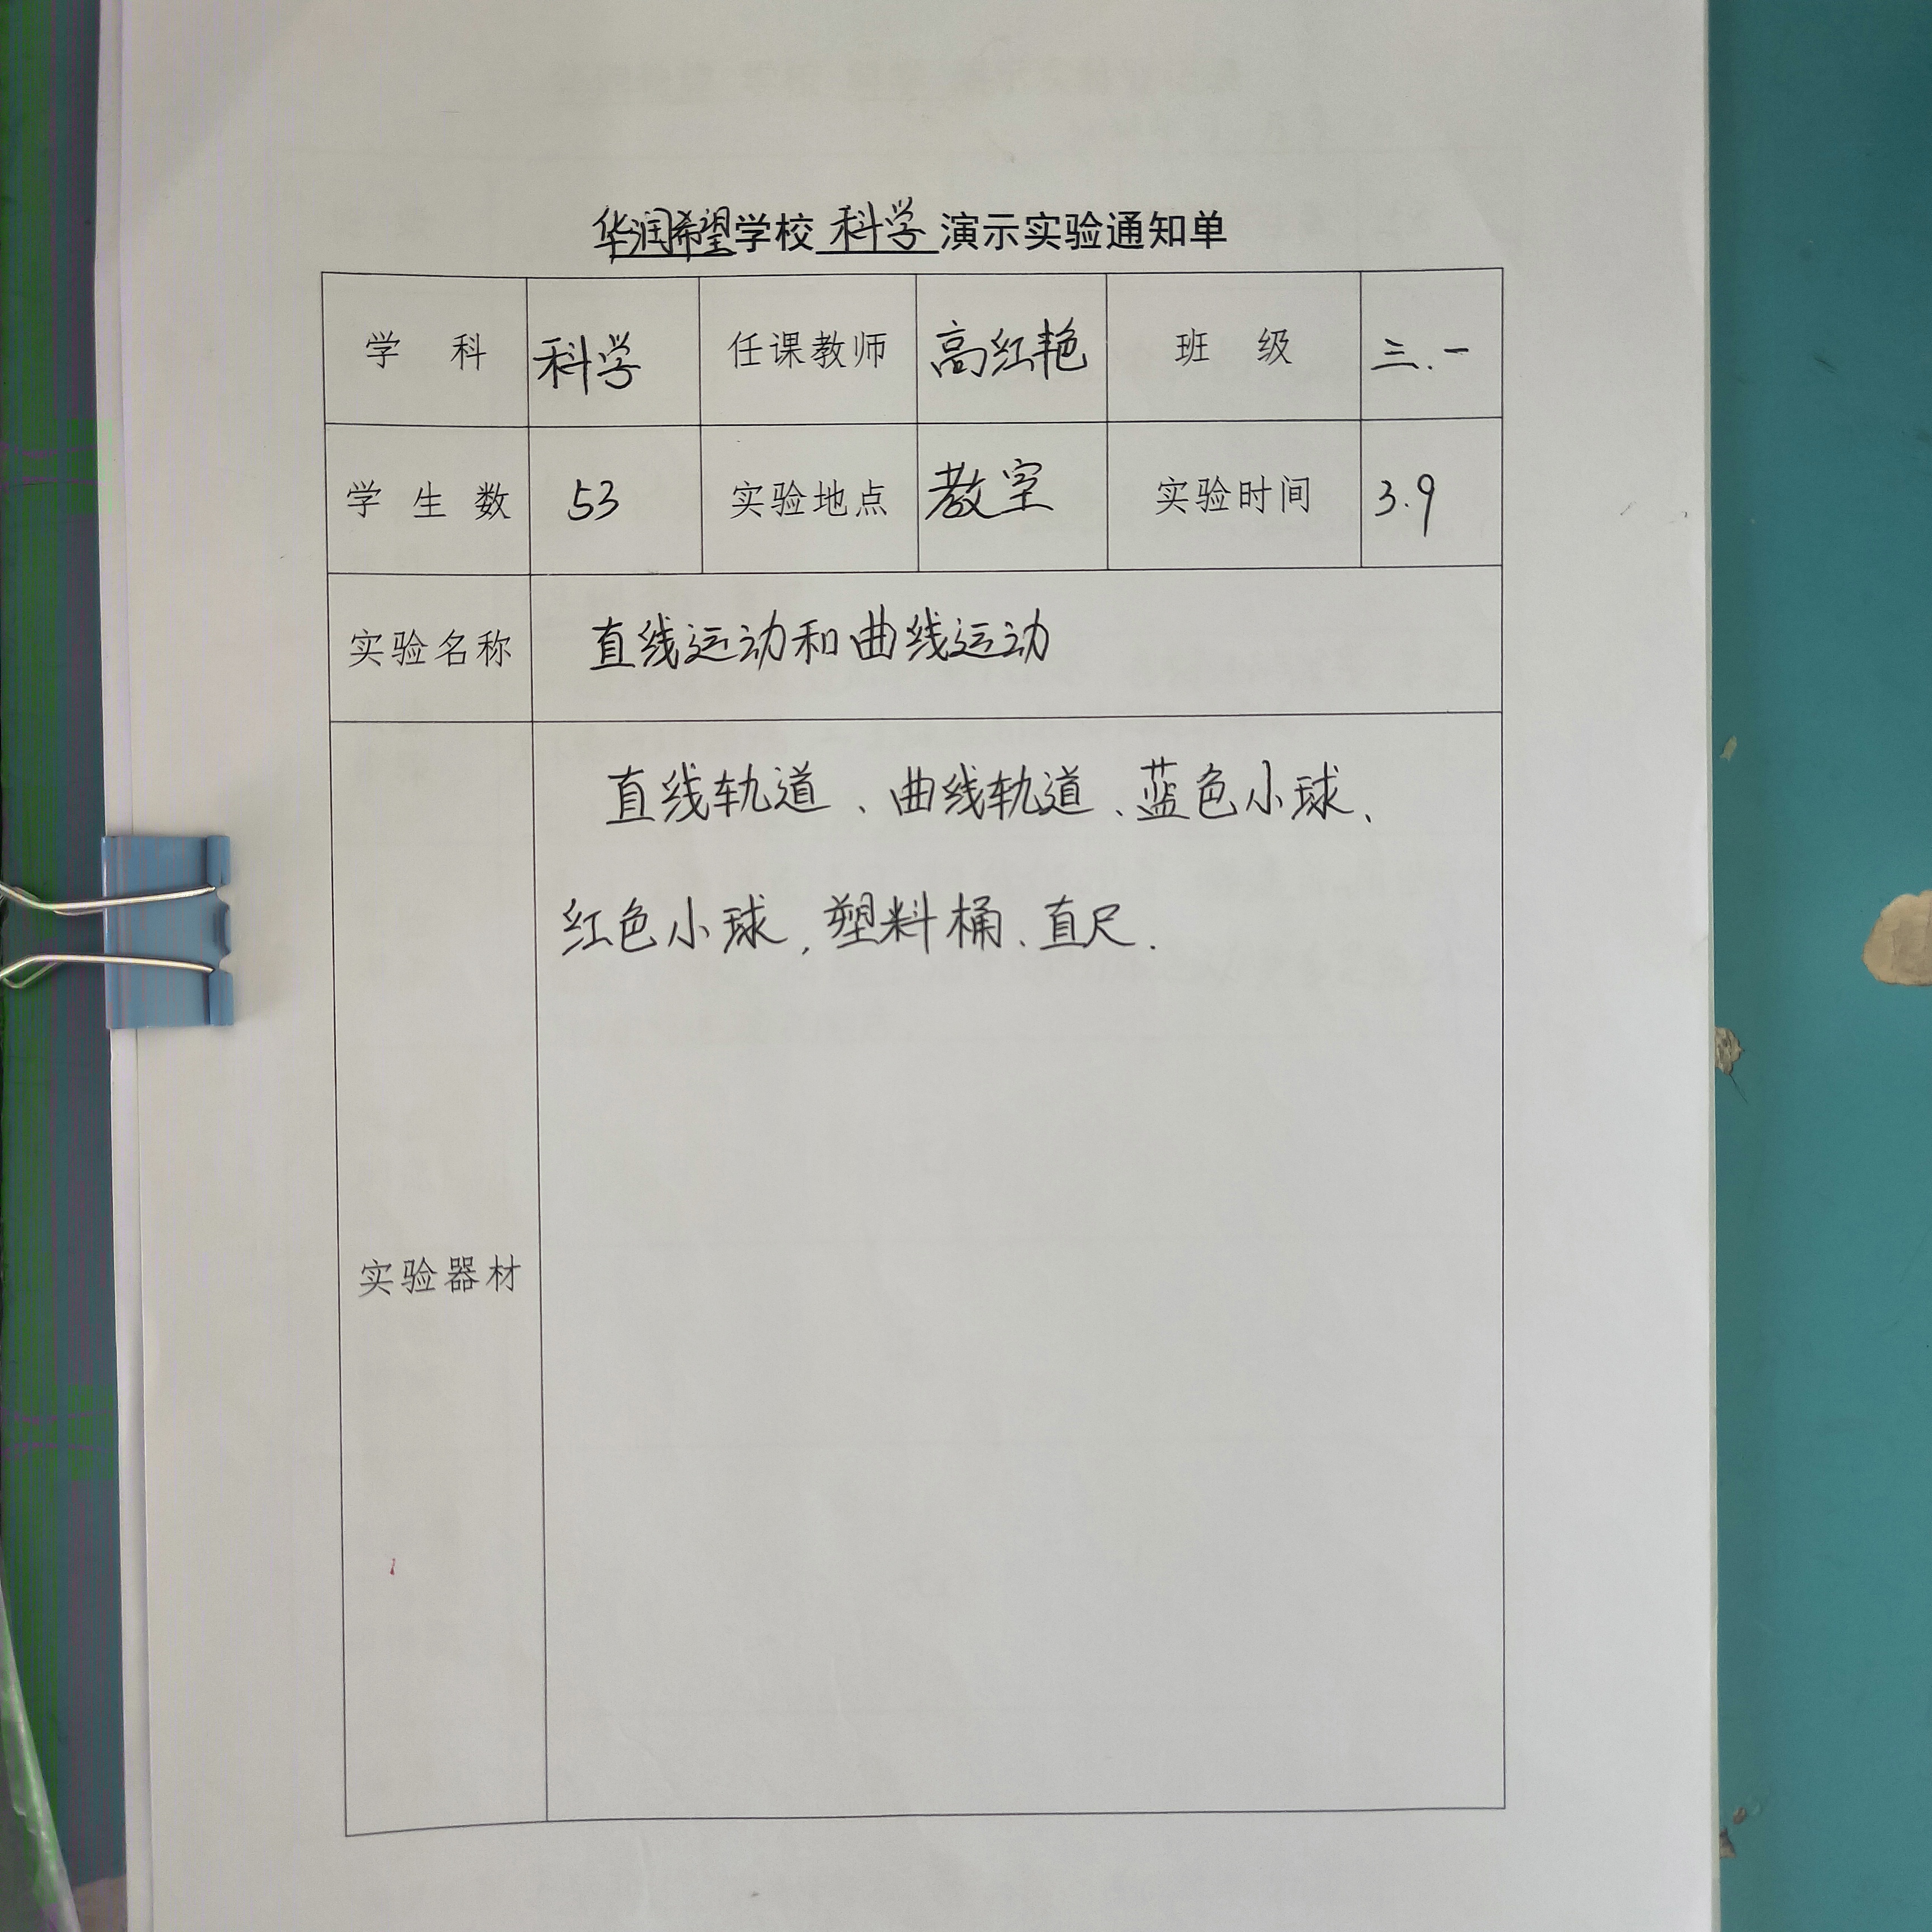 华润希望学校 科学 演示实验通知单
学 科 科学 任课教师 高红艳 班 级 三.一
学 生 数 53 实验地点 教室 实验时间 3.9
实验名称 直线运动和曲线运动
直线轨道、曲线轨道、蓝色小球、
红色小球,塑料桶、直尺.
实验器材